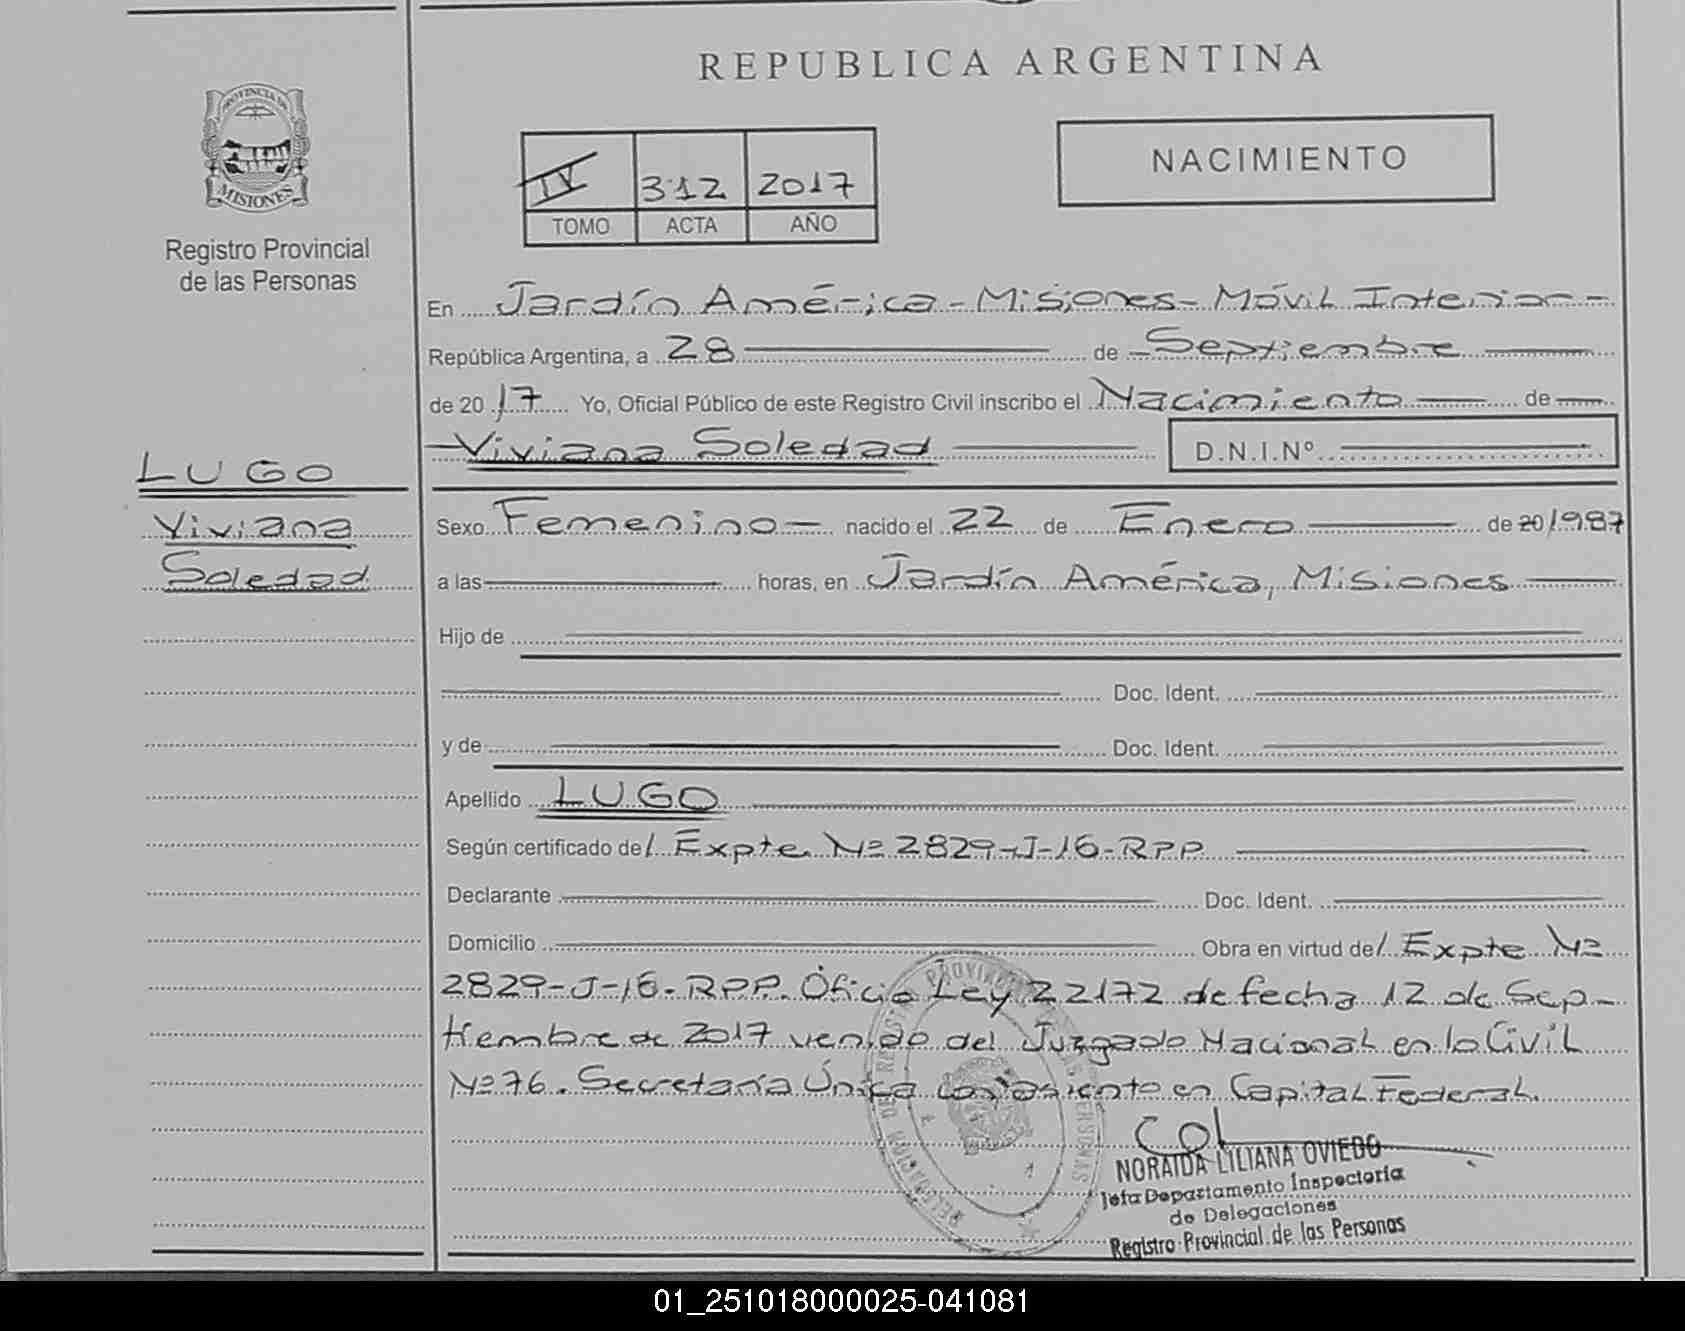 REPUBLICA ARGENTINA
PROVINCIA DE
MISIONES
Registro Provincial
de las Personas
IV 312 2017
TOMO ACTA AÑO
NACIMIENTO
En Jardín América - Misiones - Móvil Interior -
República Argentina, a 28 de Septiembre
de 2017 Yo, Oficial Público de este Registro Civil inscribo el Nacimiento de
Viviana Soledad D.N.I.Nº
LUGO
Viviana
Soledad
Sexo Femenino - nacido el 22 de Enero de 20/1987
a las horas, en Jardín América, Misiones
Hijo de
Doc. Ident.
y de Doc. Ident.
Apellido LUGO
Según certificado del Expte Nº 2829-J-16-RPP
Declarante Doc. Ident.
Domicilio Obra en virtud del Expte Nº
2829-J-16-RPP. Oficio Ley 22172 de fecha 12 de Sep-
tiembre de 2017 venido del Juzgado Nacional en lo Civil
Nº 76. Secretaría Única con asiento en Capital Federal.
NORAIDA LILIANA OVIEDO
Jefa Departamento Inspectoria
de Delegaciones
Registro Provincial de las Personas
01_251018000025-041081